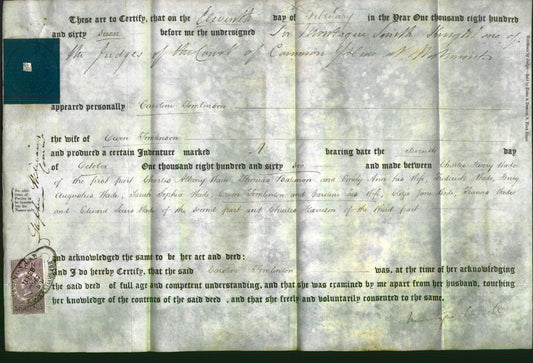 These are to Certify, that on the Eleventh day of February in the Year One thousand eight hundred
and sixty seven before me the undersigned Sir Montague Smith Knight one of
the Judges of the Court of Common Pleas at Westminster
appeared personally Caroline Tomlinson
the wife of Tomlinson
and produced a certain Indenture marked A bearing date the eleventh day
of October One thousand eight hundred and sixty six and made between Charles Henry Wade
of the first part Charles Henry Wade, Thomas and Emily Ann his Wife, Frederick Wade, Henry
Augustus Wade, Sarah Sophia Wade, Tomlinson and Caroline his Wife, Eliza Jane Wade, Frances Wade
and Edward Wade of the second part and Charles of the third part
and acknowledged the same to be her act and deed:
And I do hereby Certify, that the said Caroline Tomlinson was, at the time of her acknowledging
the said deed of full age and competent understanding, and that she was examined by me apart from her husband, touching
her knowledge of the contents of the said deed , and that she freely and voluntarily consented to the same.